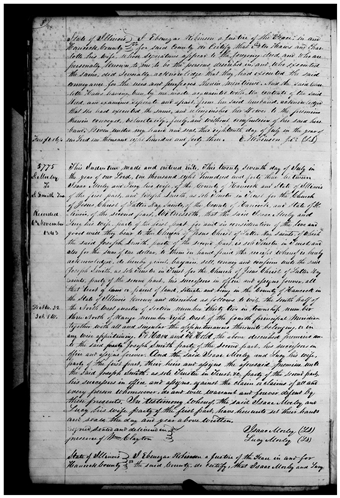 State of Illinois } I Ebenezer Robinson a justice of the Peace in and
Hancock County } for said County do Certify that Peter Haws and Char
lotte his wife, whose signatures appear to the foregoing deed and who are
personally known to me to be the persons described in and who executed
the same, did severally acknowledge that they had executed the said
conveyance for the uses and purposes therein mentioned. And the said Char
lotte Haws having been by me made acquainted with the contents of the said
deed, and examined separate and apart from her said husband, acknowledged
that she had executed the same, and relinquished her Dower to the premises
therein conveyed, voluntarily, freely, and without compulsion of her said hus
band. Given under my hand and seal this eighteenth day of July in the year of
our Lord one thousand eight hundred and forty three. E. Robinson J.P. (LS)
5775
I. Morley
To
J. Smith
Recorded
November
1843
This Indenture made and entered into This twenty seventh day of July in
the year of our Lord, one thousand eight hundred and forty three between
Isaac Morley and Lucy his wife of the County of Hancock and State of Illinois
of the first part and Joseph Smith, as sole Trustee in Trust for the Church
of Jesus Christ of Latter Day Saints, of the County of Hancock, and State of Illi
nois, of the second part, Witnesseth, that the said Isaac Morley and
Lucy his wife, party of the first part, for and in consideration of the love and
good will they have to the Church of Jesus Christ of Latter Day Saints of which
the said Joseph Smith, party of the second part, is sole Trustee in Trust and
also for the Sum of one dollar, to them in hand paid, the receipt whereof is hereby
acknowledged, do hereby grant, bargain, sell, convey and confirm unto the said
Joseph Smith, as sole Trustee in Trust for the Church of Jesus Christ of Latter Day
Saints, party of the second part, his successors in office and assigns forever, all
that tract or piece or parcel of land, situate and lying in the County of Hancock in
the State of Illinois known and described as follows to wit, The south half of
the North West quarter of Section number thirty two in Township number
North of Range number eight West of the fourth principal Meridian
Together with all and singular the appurtenances thereunto belonging, or in
any wise appertaining. To Have and To Hold, the above described premises un
to the said party Joseph Smith party of the second part, his successors in
office and assigns forever. And the said Isaac Morley and Lucy his wife,
party of the first part, their heirs and assigns the aforesaid premises unto
the said Joseph Smith, as sole Trustee in Trust &c. party of the second part
his successors in office, and assigns, against the claim or claims of all and
every person whomsoever, do and will warrant and forever defend by
these presents. In Testimony whereof the said Isaac Morley and
Lucy his wife party of the first part, have hereunto set their hands
and seals the day and year above written.
Signed sealed and delivered in }
presence of Wm Clayton }
Isaac Morley (LS)
Lucy Morley (LS)
State of Illinois } I, Ebenezer Robinson a Justice of the Peace in and for
Hancock County } the said County do Certify, that Isaac Morley and Lucy